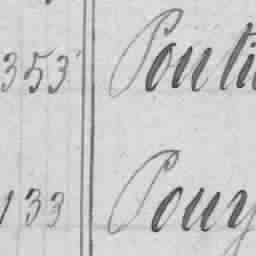 353 Ponti
133 Pouy